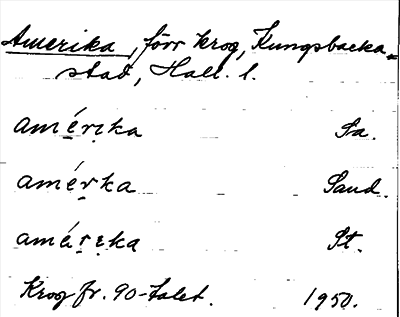 Amerika, förr krog, Kungsbacka=
stad, Hall. l.
amérika Fa.
amérka Sand.
amérəka St.
Krog fr. 90-talet. 1950.